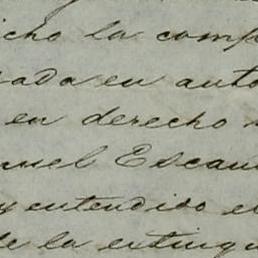 icho la comp
ada en auto
en derecho
uel Escan
y entendido e
de la extingu